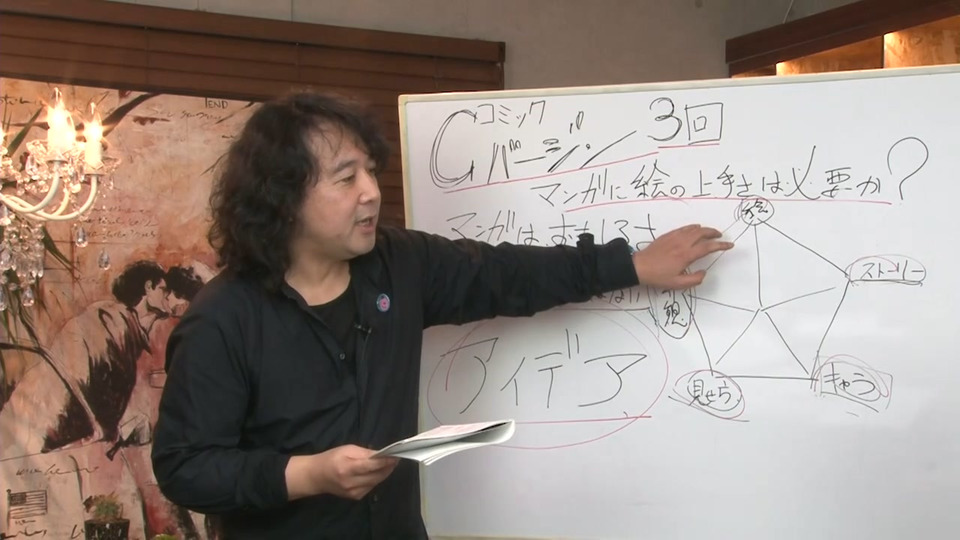 コミック
Cバージン 3回
マンガに絵の上手さは必要か?
マンガは、おもしろさ
絵
ストーリー
観
アイデア
見せ方
キャラ
END